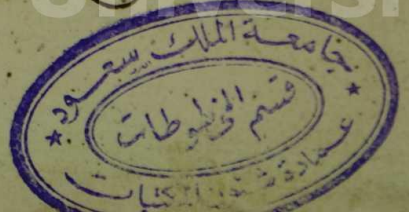 Universi
جامعة الملك سعود
قسم المخطوطات
عمادة شئون المكتبات